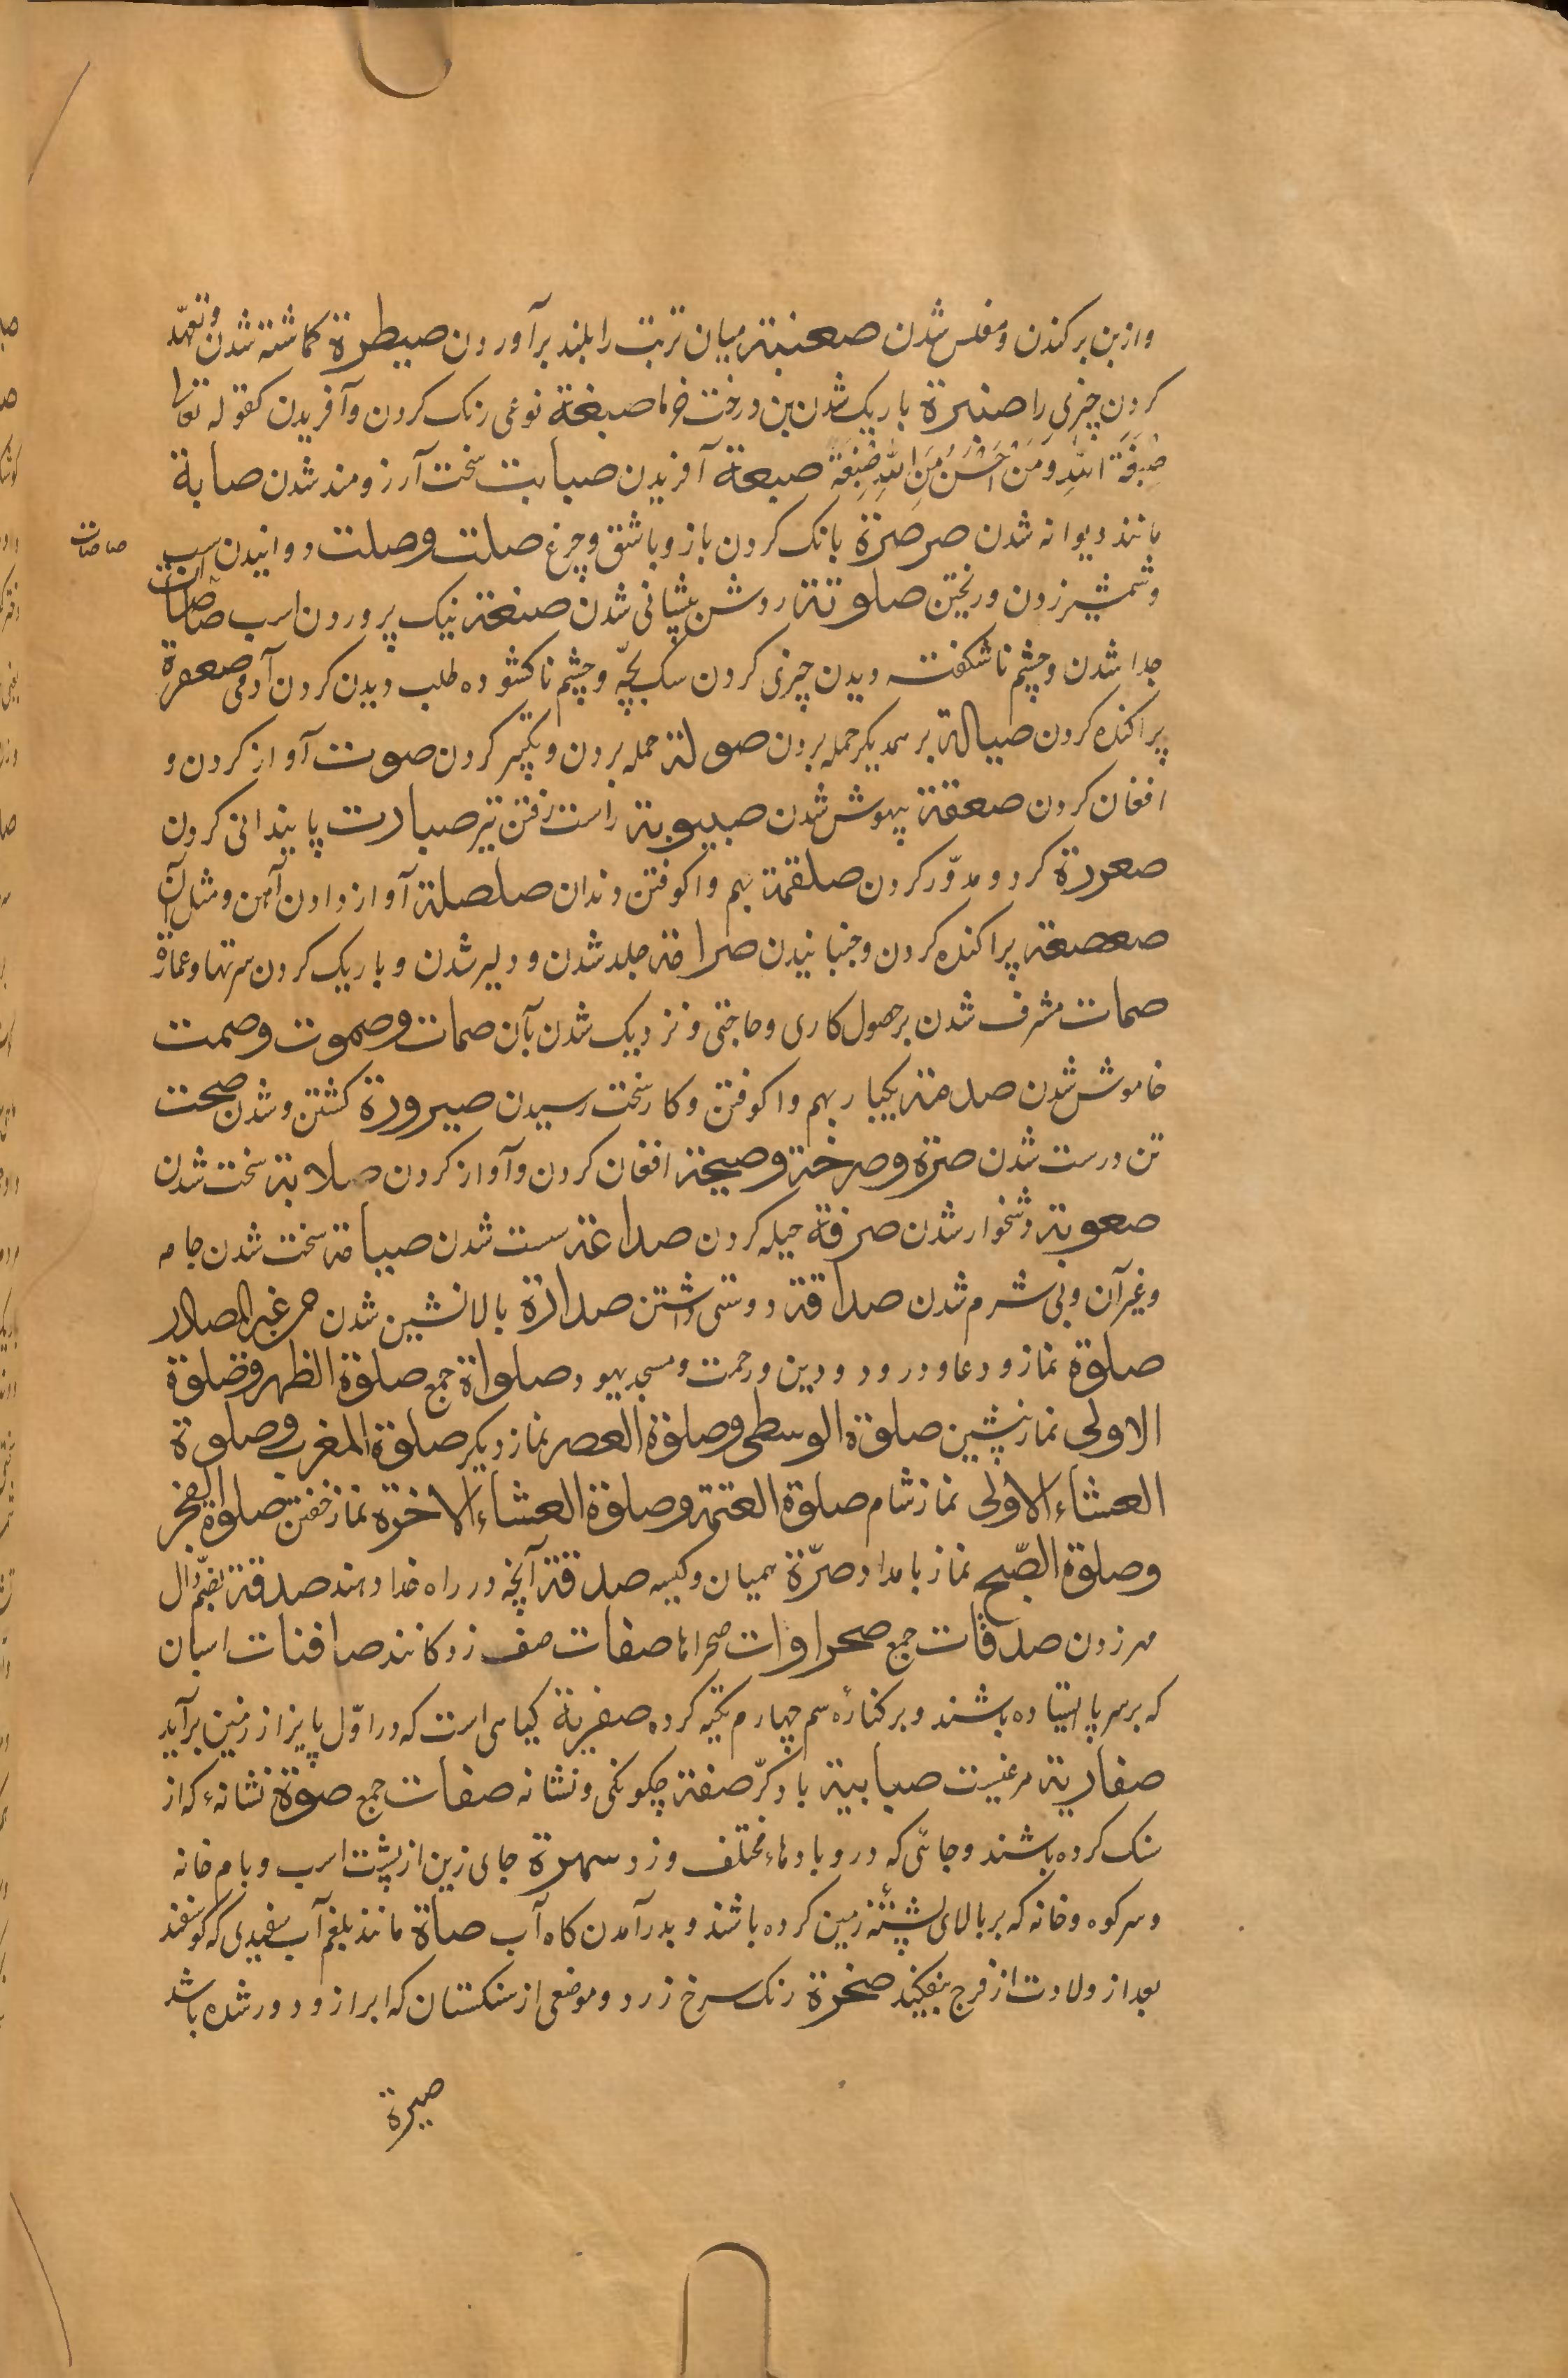 وازبن برکندن و مفلس شدن صعنبة میان تربت را بلند برآوردن صیطرة کماشته شدن و تعهّد
کردن چیزی را صنبرة باریک شدن بن درخت خرما صبغة نوعی رنک کردن و آفریدن کقوله تعالی
صِبْغَةَ اللّٰهِ وَمَنْ اَحْسَنُ مِنَ اللّٰهِ صِبْغَةً صبعة آفریدن صبابت سخت آرزومند شدن صابة
مانند دیوانه شدن صرصرة بانک کردن باز و باشق و چرغ صلت و صلت دوانیدن اسب
صاصات
و شمشیر زدن و ریختن صلوتة روشن پیشانی شدن صنعة نیک پروردن اسب صاصات
جدا شدن و چشم ناشکفته دیدن چیزی کردن سک بچّه و چشم ناکشوده طلب دیدن کردن آدمی صعفرة
پراکنده کردن صیالة بر همدیکر حمله بردن صولة حمله بردن و تکبّر کردن صوت آواز کردن و
افغان کردن صعقة بیهوش شدن صیبوبة راست رفتن تیر صبارت پایندانی کردن
صعررة کرد و مدوّر کردن صلقمة بهم واکوفتن دندان صلصلة آواز دادن آهن و مثل آن
صعصعة پراکنده کردن و جنبانیدن صرامة جلد شدن و دلیر شدن و باریک کردن سرتها و عمارة
صمات مشرف شدن بر حصول کاری و حاجتی و نزدیک شدن بآن صمات و صموت و صمت
خاموش شدن صدمة یکبار بهم واکوفتن و کار سخت رسیدن صیرورة کشتن و شدن صحت
تن درست شدن صرة و صرخة و صیحة افغان کردن و آواز کردن صلابة سخت شدن
صعوبة دشخوار شدن صرفة حیله کردن صداغة سست شدن صیامة سخت شدن جامه
و غیر آن و بی شرم شدن صداقة دوستی داشتن صدارة بالانشین شدن من غیر المصادر
صلوة نماز و دعا و درود و دین و رحمت و مسجد یهود صلواة جمع صلوة الظهر و صلوة
الاولی نماز پیشین صلوة الوسطی و صلوة العصر نماز دیکر صلوة المغرب و صلوة
العشاء الاولی نماز شام صلوة العتمة و صلوة العشاء الاخرة نماز خفتن صلوة الفجر
و صلوة الصّبح نماز بامداد صرّة همیان و کیسه صدقة آنچه در راه خدا دهند صدقة بضمّ دال
مهر زدن صدقات جمع صحراوات صحراها صفات صف زدکانند صافنات اسبان
که بر سر پا ایستاده باشند و بر کناره سم چهارم تکیه کرده صفریة کیاهی است که در اوّل پاییز از زمین برآید
صفاریة مرغیست صبابیة باد کرّ صفة چکونکی و نشانه صفات جمع صوّة نشانهٔ که از
سنک کرده باشند و جائی که در و بادهاء مختلف وزد سهرة جای زین از پشت اسب و بام خانه
و سر کوه و خانه که بر بالای پشتهٔ زمین کرده باشند و بدرآمدن کاه آب صاة مانند بلغم آب سفیدی که کوسفند
بعد از ولادت از فرج بیفکند صخرة رنک سرخ زرد و موضعی از سنکستان که ابر ازو دور شده باشد
صیرة